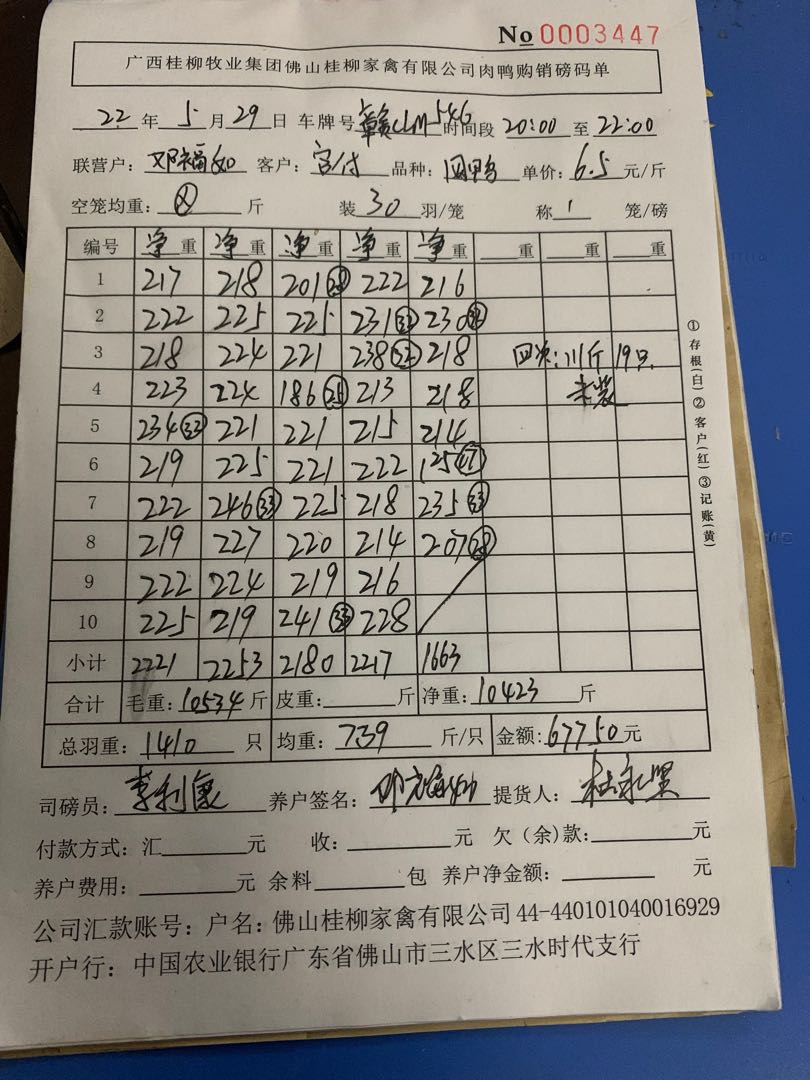 No 0003447
广西桂柳牧业集团佛山桂柳家禽有限公司肉鸭购销磅码单
22 年 5 月 29 日 车牌号 赣CLM546 时间段 20:00 至 22:00
联营户: 邓福如 客户: 宫付 品种: 肉鸭 单价: 6.5 元/斤
空笼均重: 斤 装 30 羽/笼 称 1 笼/磅
编号 净重 净重 净重 净重 净重 重 重 重
1 217 218 201 28 222 216
2 222 225 225 231 32 230 32
3 218 224 221 238 32 218 回次: 111斤 19只
4 223 224 186 25 213 218 未装
5 234 32 221 221 215 214
6 219 225 221 222 125 17
7 222 246 33 225 218 235 33
8 219 227 220 214 207 28
9 222 224 219 216
10 225 219 241 33 228
小计 2221 2253 2180 2217 1663
合计 毛重: 10534 斤 皮重: 斤 净重: 10423 斤
总羽重: 1410 只 均重: 7.39 斤/只 金额: 67750 元
司磅员: 李利康 养户签名: 邓福如 提货人:
付款方式: 汇 元 收: 元 欠(余)款: 元
养户费用: 元 余料 包 养户净金额: 元
公司汇款账号: 户名: 佛山桂柳家禽有限公司 44-440101040016929
开户行: 中国农业银行广东省佛山市三水区三水时代支行
①存根(白)②客户(红)③记账(黄)